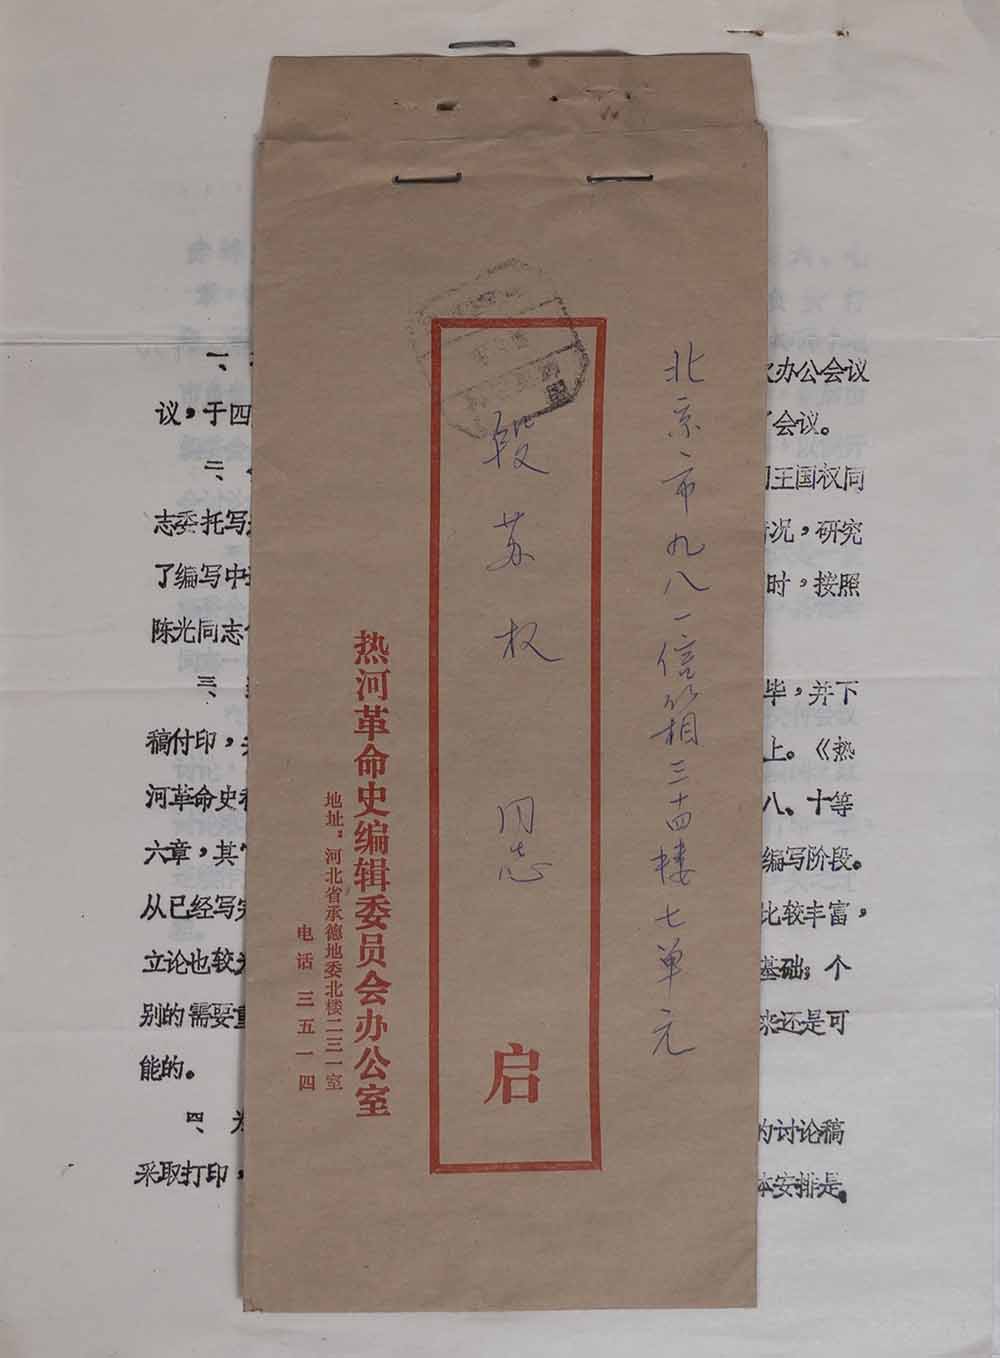 北京市九八一信箱三十四楼七单元
段苏权 同志
启
热河革命史编辑委员会办公室
地址：河北省承德地委北楼二三一室
电话 三五一四
一、
次办公会议
议，于四
会议。
二、
王国权同
志委托写
情况，研究
了编写中
时，按照
陈光同志
三、
毕，并下
稿付印，
上。《热
河革命史
八、十等
六章，其
编写阶段。
从已经写完
比较丰富，
立论也较
基础；个
别的需要重
来还是可
能的。
四、
的讨论稿
采取打印，
体安排是，